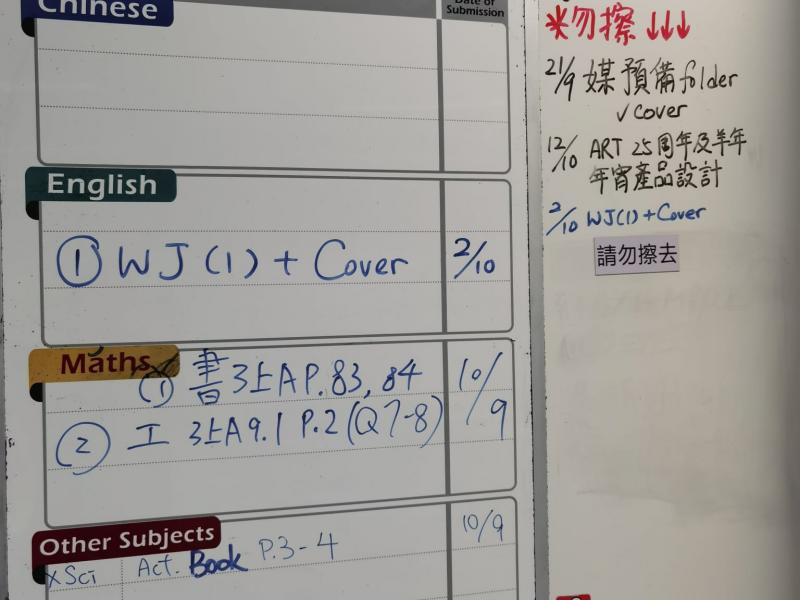 Chinese
Date of
Submission
English
① WJ(1) + Cover 2/10
Maths
① 書 3上A P.83, 84 10/9
② 工 3上A9.1 P.2 (Q7-8)
Other Subjects
xSci Act. Book P.3-4 10/9
*勿擦 ↓↓↓
21/9 媒 預備 folder
✓cover
12/10 ART 25周年及羊年
年宵產品設計
2/10 WJ(1)+Cover
請勿擦去